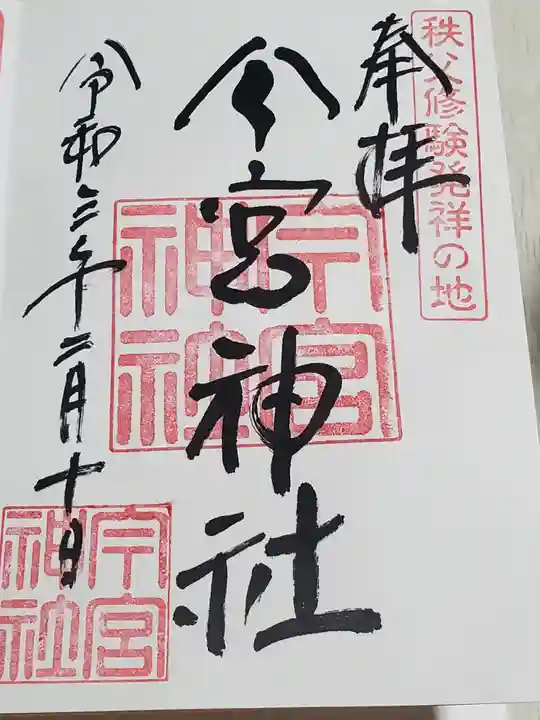 秩父修験発祥の地
奉拝
今宮神社
今宮神社
令和三年二月十日
今宮神社